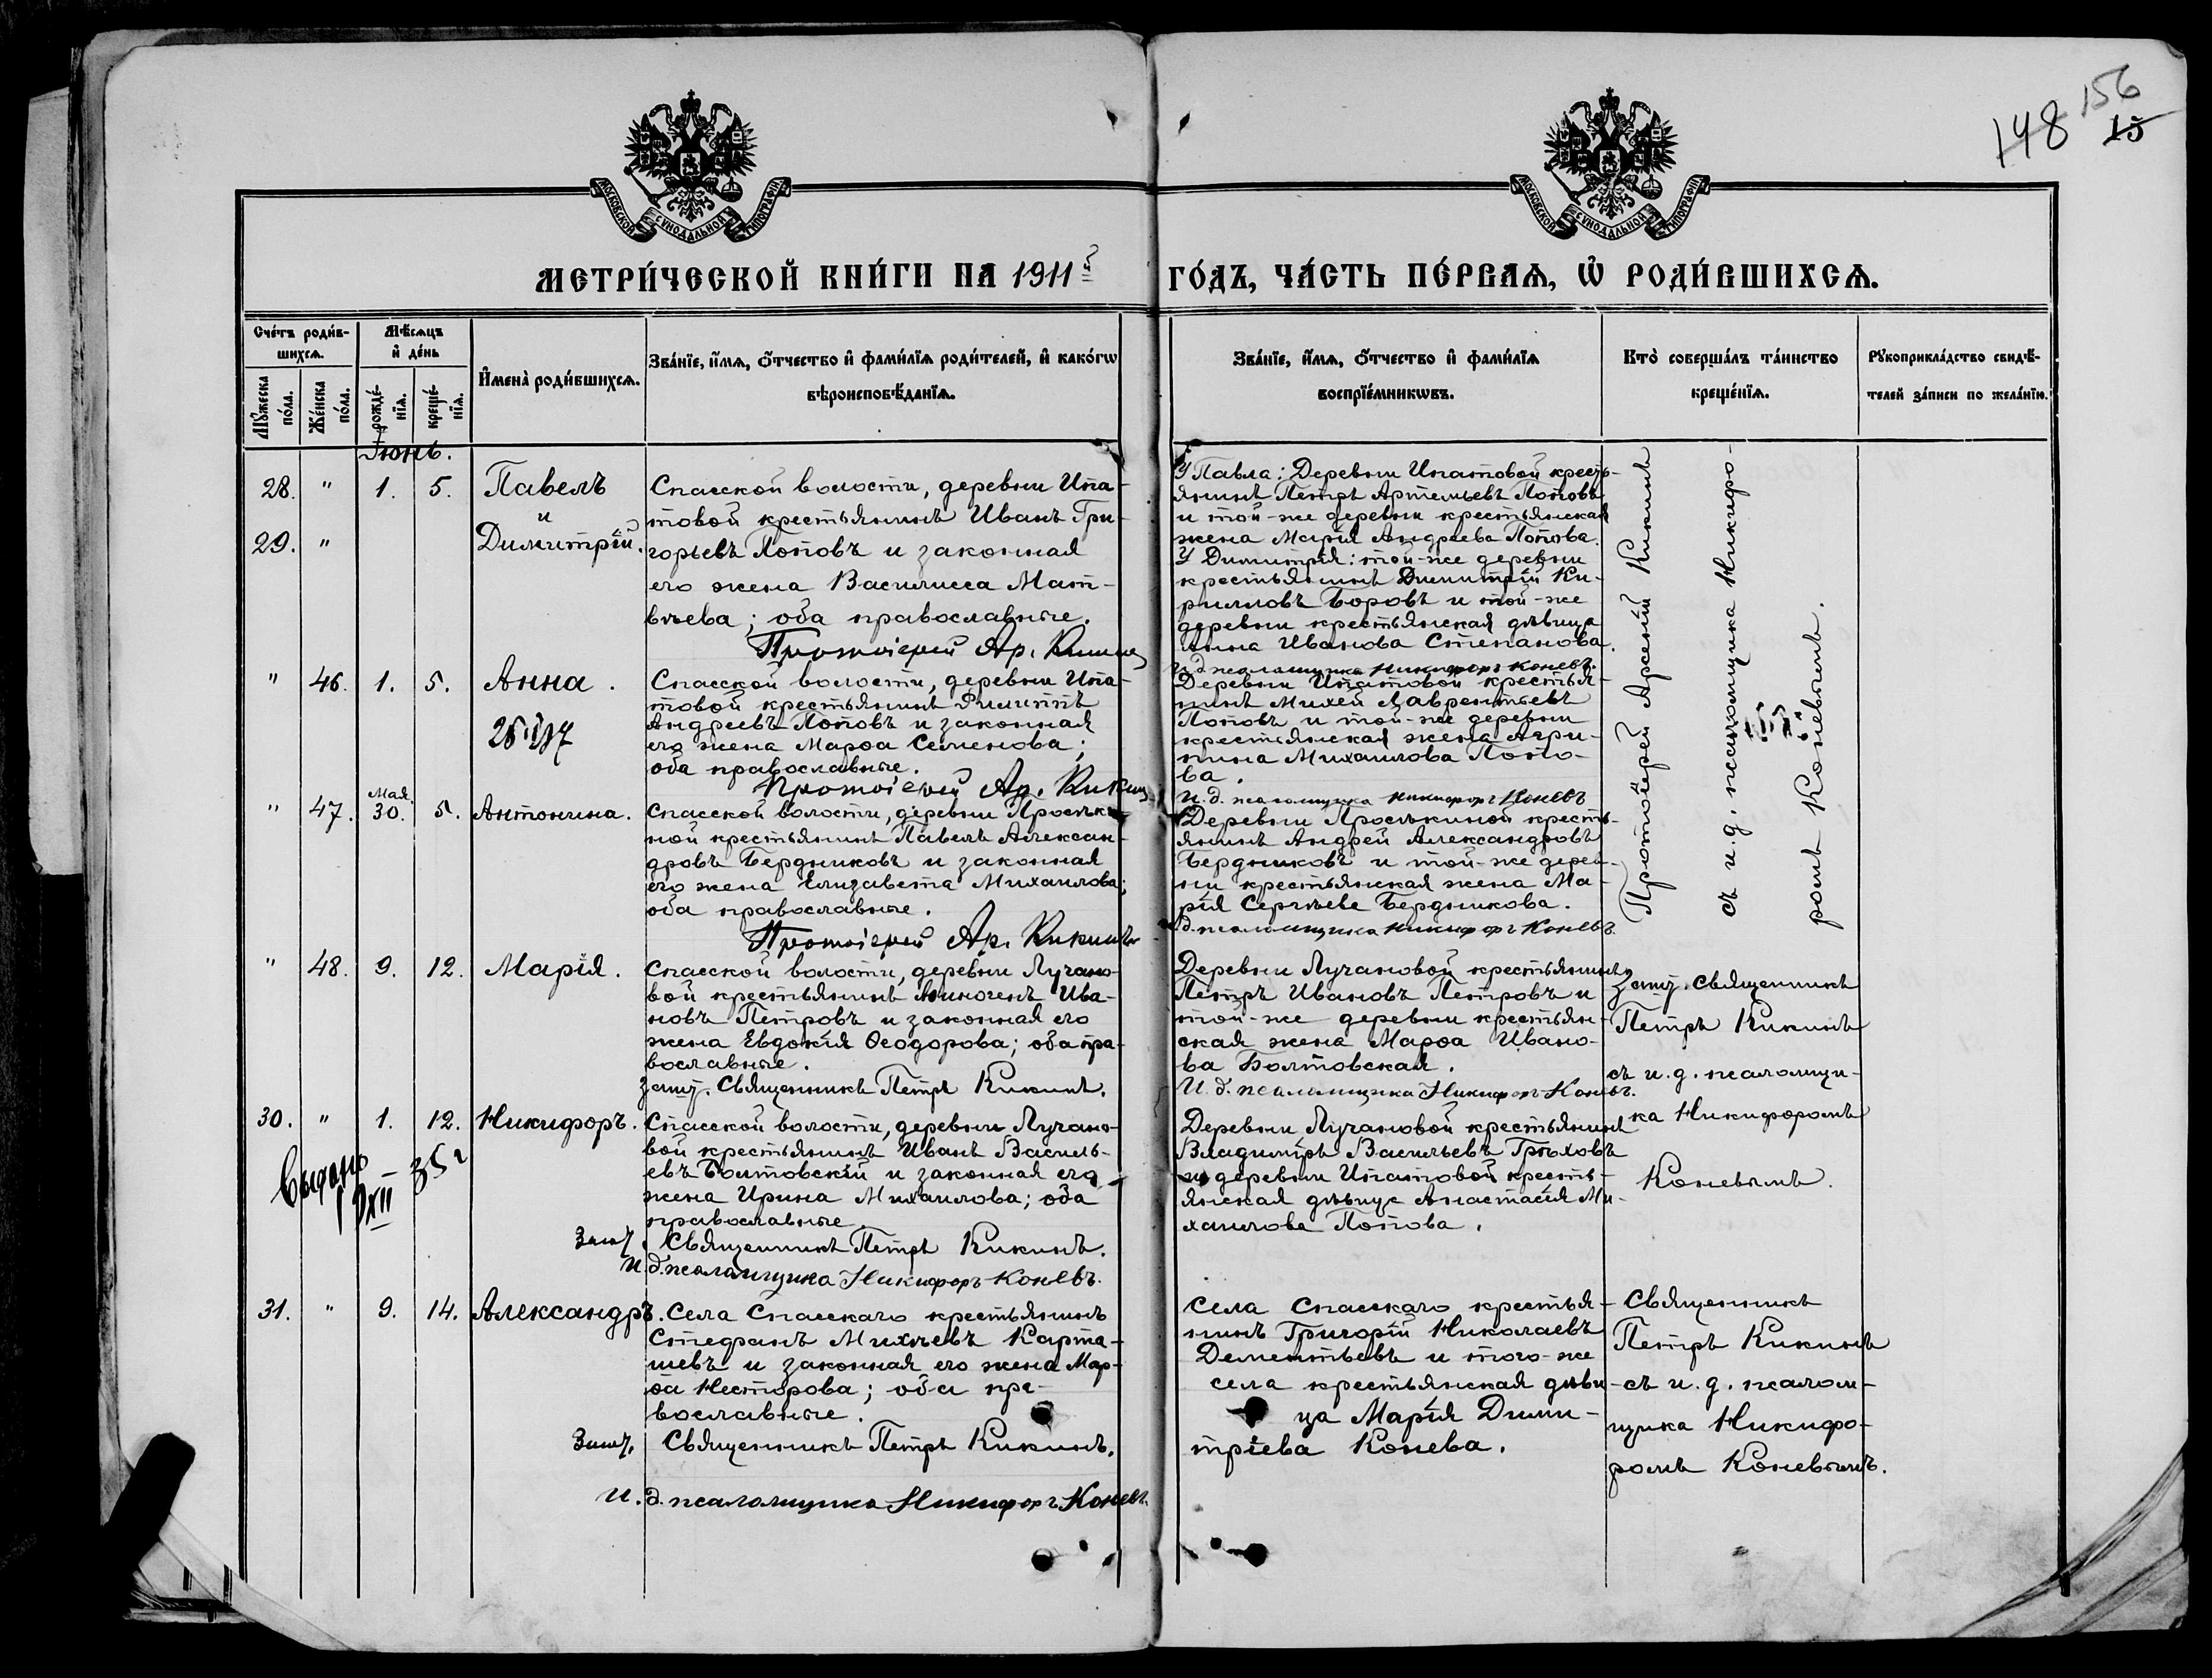 148 156
15
МОСКОВСКОЙ СѴНОДАЛЬНОЙ ТИПОГРАФІИ
МОСКОВСКОЙ СѴНОДАЛЬНОЙ ТИПОГРАФІИ
МЕТРИ́ЧЕСКОЙ КНИ́ГИ НА 1911й
ГО́ДЪ, ЧА́СТЬ ПЕ́РВАѦ, Ѽ РОДИ́ВШИХСѦ.
Сче́тъ роди́в-
шихсѧ.
Мѣ́сѧцъ
и҆ де́нь
Мꙋ́жеска
по́ла.
Же́нска
по́ла.
рожде́-
нїѧ.
креще́-
нїѧ.
И҆мена̀ роди́вшихсѧ.
Зва́нїе, и҆́мѧ, ѻ҆́тчество и҆ фами́лїѧ роди́телей, и҆ како́гѡ
вѣроисповѣ́данїѧ.
Зва́нїе, и҆́мѧ, ѻ҆́тчество и҆ фами́лїѧ
воспрїе́мникѡвъ.
Кто̀ соверша́лъ та́инство
креще́нїѧ.
Рꙋкоприкла́дство свидѣ́-
телей за́писи по жела́нїю.
Іюнь.
28. " 1. 5. Павелъ
и
29. " Димитрій.
Спасской волости, деревни Ипа-
товой крестьянинъ Иванъ Гри-
горьевъ Поповъ и законная
его жена Василисса Мат-
вѣева; оба православные.
Протоіерей Ар. Кикинъ
У Павла: Деревни Ипатовой кресть-
янинъ Петръ Артемьевъ Поповъ
и той-же деревни крестьянская
жена Марія Андреева Попова.
У Димитрія: той-же деревни
крестьянинъ Димитрій Ки-
рилловъ Боровъ и той-же
деревни крестьянская дѣвица
Анна Иванова Степанова.
И. д. псаломщика Никифоръ Коневъ.
Протоіерей Арсеній Кикинъ
съ и. д. псаломщика Никифо-
ромъ Коневымъ.
" 46. 1. 5. Анна.
Спасской волости, деревни Ипа-
товой крестьянинъ Филиппъ
Андреевъ Поповъ и законная
его жена Марѳа Семенова;
оба православные.
Протоіерей Ар. Кикинъ
Деревни Ипатовой крестья-
нинъ Михей Лаврентьевъ
Поповъ и той-же деревни
крестьянская жена Агри-
пина Михаилова Попо-
ва.
И. д. псаломщика Никифоръ Коневъ
Мая
" 47. 30. 5. Антонина.
Спасской волости, деревни Просѣки-
ной крестьянинъ Павелъ Алексан-
дровъ Бердниковъ и законная
его жена Елизавета Михаилова;
оба православные.
Протоіерей Ар. Кикинъ
Деревни Просѣкиной кресть-
янинъ Андрей Александровъ
Бердниковъ и той-же дерев-
ни крестьянская жена Ма-
рія Сергѣева Бердникова.
И. д. псаломщика Никифоръ Коневъ.
" 48. 9. 12. Марія.
Спасской волости, деревни Лучано-
вой крестьянинъ Аѳиногенъ Ива-
новъ Петровъ и законная его
жена Евдокія Ѳеодорова; оба пра-
вославные.
Священникъ Петръ Кикинъ.
Деревни Лучановой крестьянинъ
Петръ Ивановъ Петровъ и
той-же деревни крестьян-
ская жена Марѳа Ивано-
ва Болтовская.
И. д. псаломщика Никифоръ Коневъ.
Священникъ
Петръ Кикинъ
съ и. д. псаломщи-
ка Никифоромъ
Коневымъ.
30. " 1. 12. Никифоръ.
Выдано
Спасской волости, деревни Лучано-
вой крестьянинъ Иванъ Василь-
евъ Болтовскій и законная его
жена Ирина Михаилова; оба
православные.
Священникъ Петръ Кикинъ.
И. д. псаломщика Никифоръ Коневъ.
Деревни Лучановой крестьянинъ
Владиміръ Васильевъ Грѣховъ
и деревни Ипатовой кресть-
янская дѣвица Анастасія Ми-
хаилова Попова.
31. " 9. 14. Александръ.
Села Спасскаго крестьянинъ
Стефанъ Михѣевъ Карта-
шевъ и законная его жена Мар-
ѳа Несторова; оба пра-
вославные.
Священникъ Петръ Кикинъ.
И. д. псаломщика Никифоръ Коневъ.
Села Спасскаго крестья-
нинъ Григорій Николаевъ
Дементьевъ и того-же
села крестьянская дѣви-
ца Марія Дими-
тріева Конева.
Священникъ
Петръ Кикинъ
съ и. д. псалом-
щика Никифо-
ромъ Коневымъ.